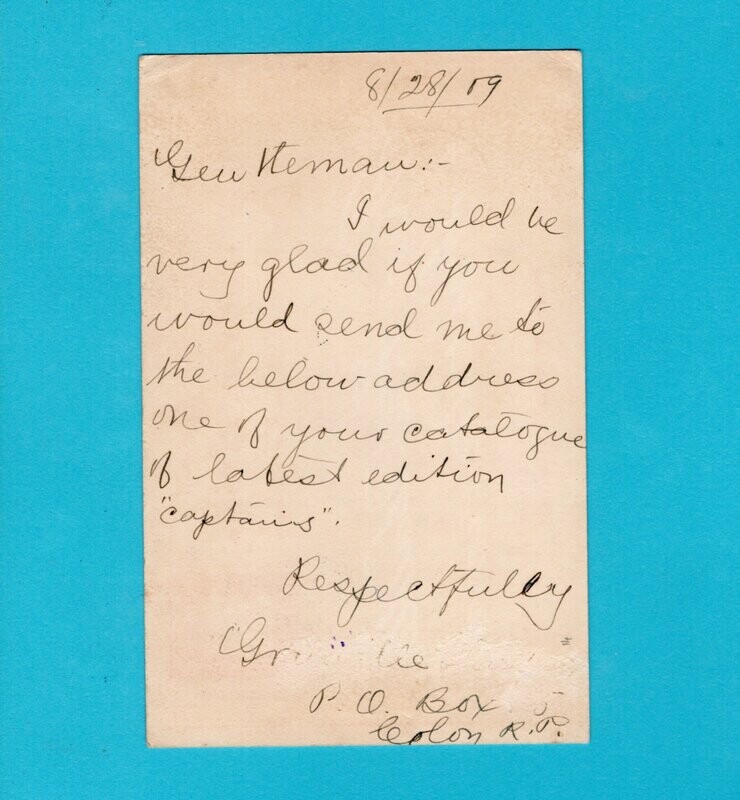 8/28/09
Gentleman:-
I would be
very glad if you
would send me to
the below address
one of your catalogue
of latest edition
"captains".
Respectfully
P. O. Box 5
Colon R.P.